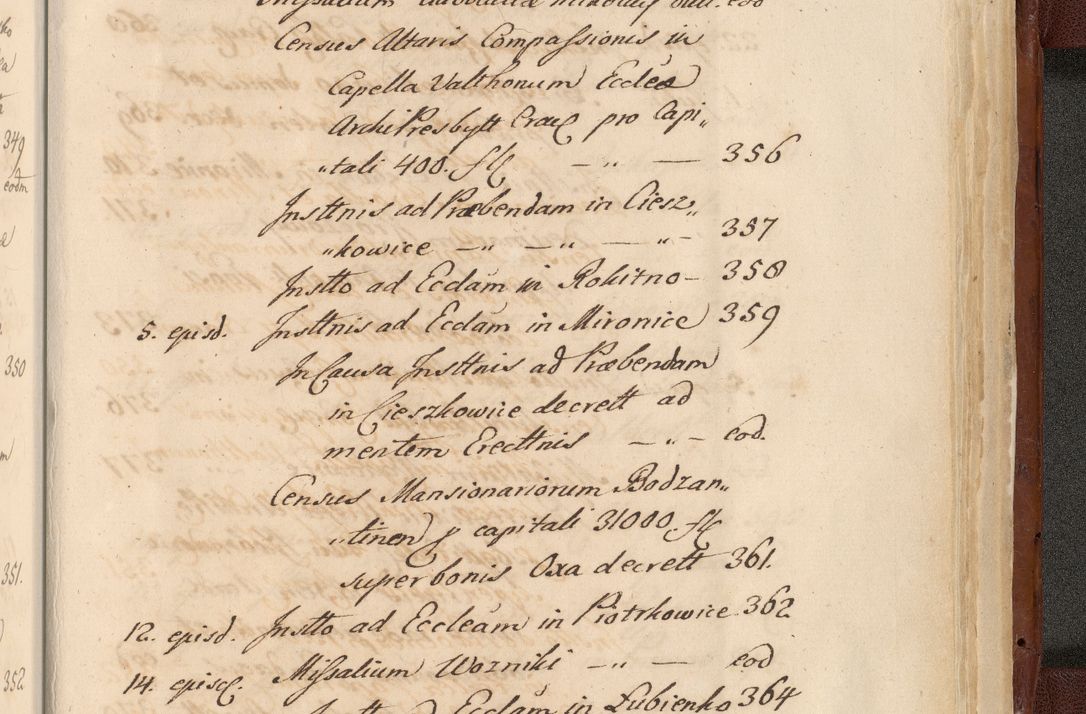 349
eodm
350
351.
352
Census Altaris Compassionis in
Capella Valthonum Eccleæ
ArchiPresbytt Crac pro Capi„
„tali 400. fl — „ — 356
Insttnis ad Præbendam in Ciesz„
„kowice — „ — „ — „ — 357
Instto ad Ecclam in Rokitno — 358
5. episd. Insttnis ad Ecclam in Mironice 359
In Causa Insttnis ad Præbendam
in Cieszkowice decrett ad
mentem Erecttnis — „ — eod.
Census Mansionariorum Bodzan„
„tinen p capitali 31000. fl
super bonis Oxa decrett 361.
12. episd. Instto ad Eccleam in Piotrkowice 362
14. episc. Missalium Wozniki — „ — eod
Ecclam in Lubienko 364